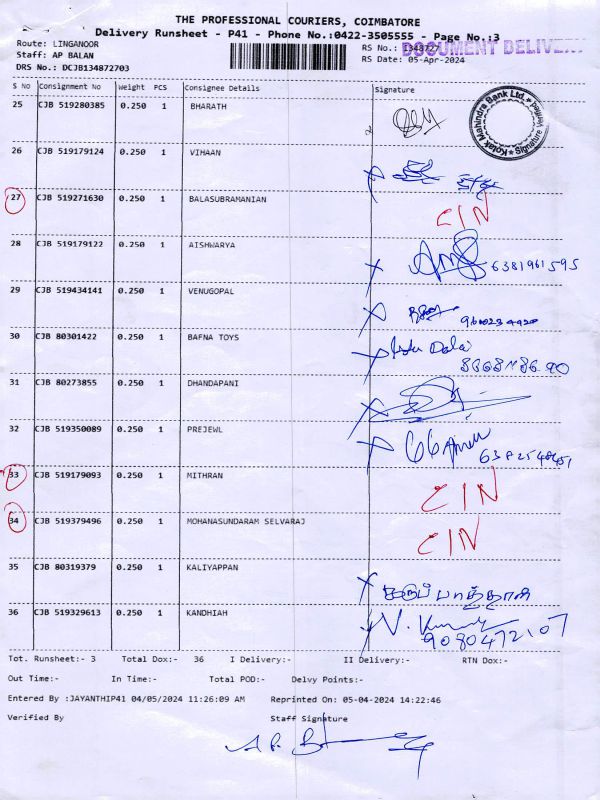 THE PROFESSIONAL COURIERS, COIMBATORE
Delivery Runsheet - P41 - Phone No.:0422-3505555 - Page No.:3
Route: LINGANOOR
Staff: AP BALAN
DRS No.: DCJB134872703
RS No.: 1348727
RS Date: 05-Apr-2024
DOCUMENT DELIVE
S No Consignment No Weight PCS Consignee Details Signature
Kotak Mahindra Bank Ltd. Signature Verified
25 CJB 519280385 0.250 1 BHARATH
26 CJB 519179124 0.250 1 VIHAAN
27 CJB 519271630 0.250 1 BALASUBRAMANIAN CIN
28 CJB 519179122 0.250 1 AISHWARYA 6381961595
29 CJB 519434141 0.250 1 VENUGOPAL
30 CJB 80301422 0.250 1 BAFNA TOYS
31 CJB 80273855 0.250 1 DHANDAPANI
32 CJB 519350089 0.250 1 PREJEWL
33 CJB 519179093 0.250 1 MITHRAN CIN
34 CJB 519379496 0.250 1 MOHANASUNDARAM SELVARAJ CIN
35 CJB 80319379 0.250 1 KALIYAPPAN
36 CJB 519329613 0.250 1 KANDHIAH
9080472107
Tot. Runsheet:- 3 Total Dox:- 36 I Delivery:- II Delivery:- RTN Dox:-
Out Time:- In Time:- Total POD:- Delvy Points:-
Entered By :JAYANTHIP41 04/05/2024 11:26:09 AM Reprinted On: 05-04-2024 14:22:46
Verified By Staff Signature